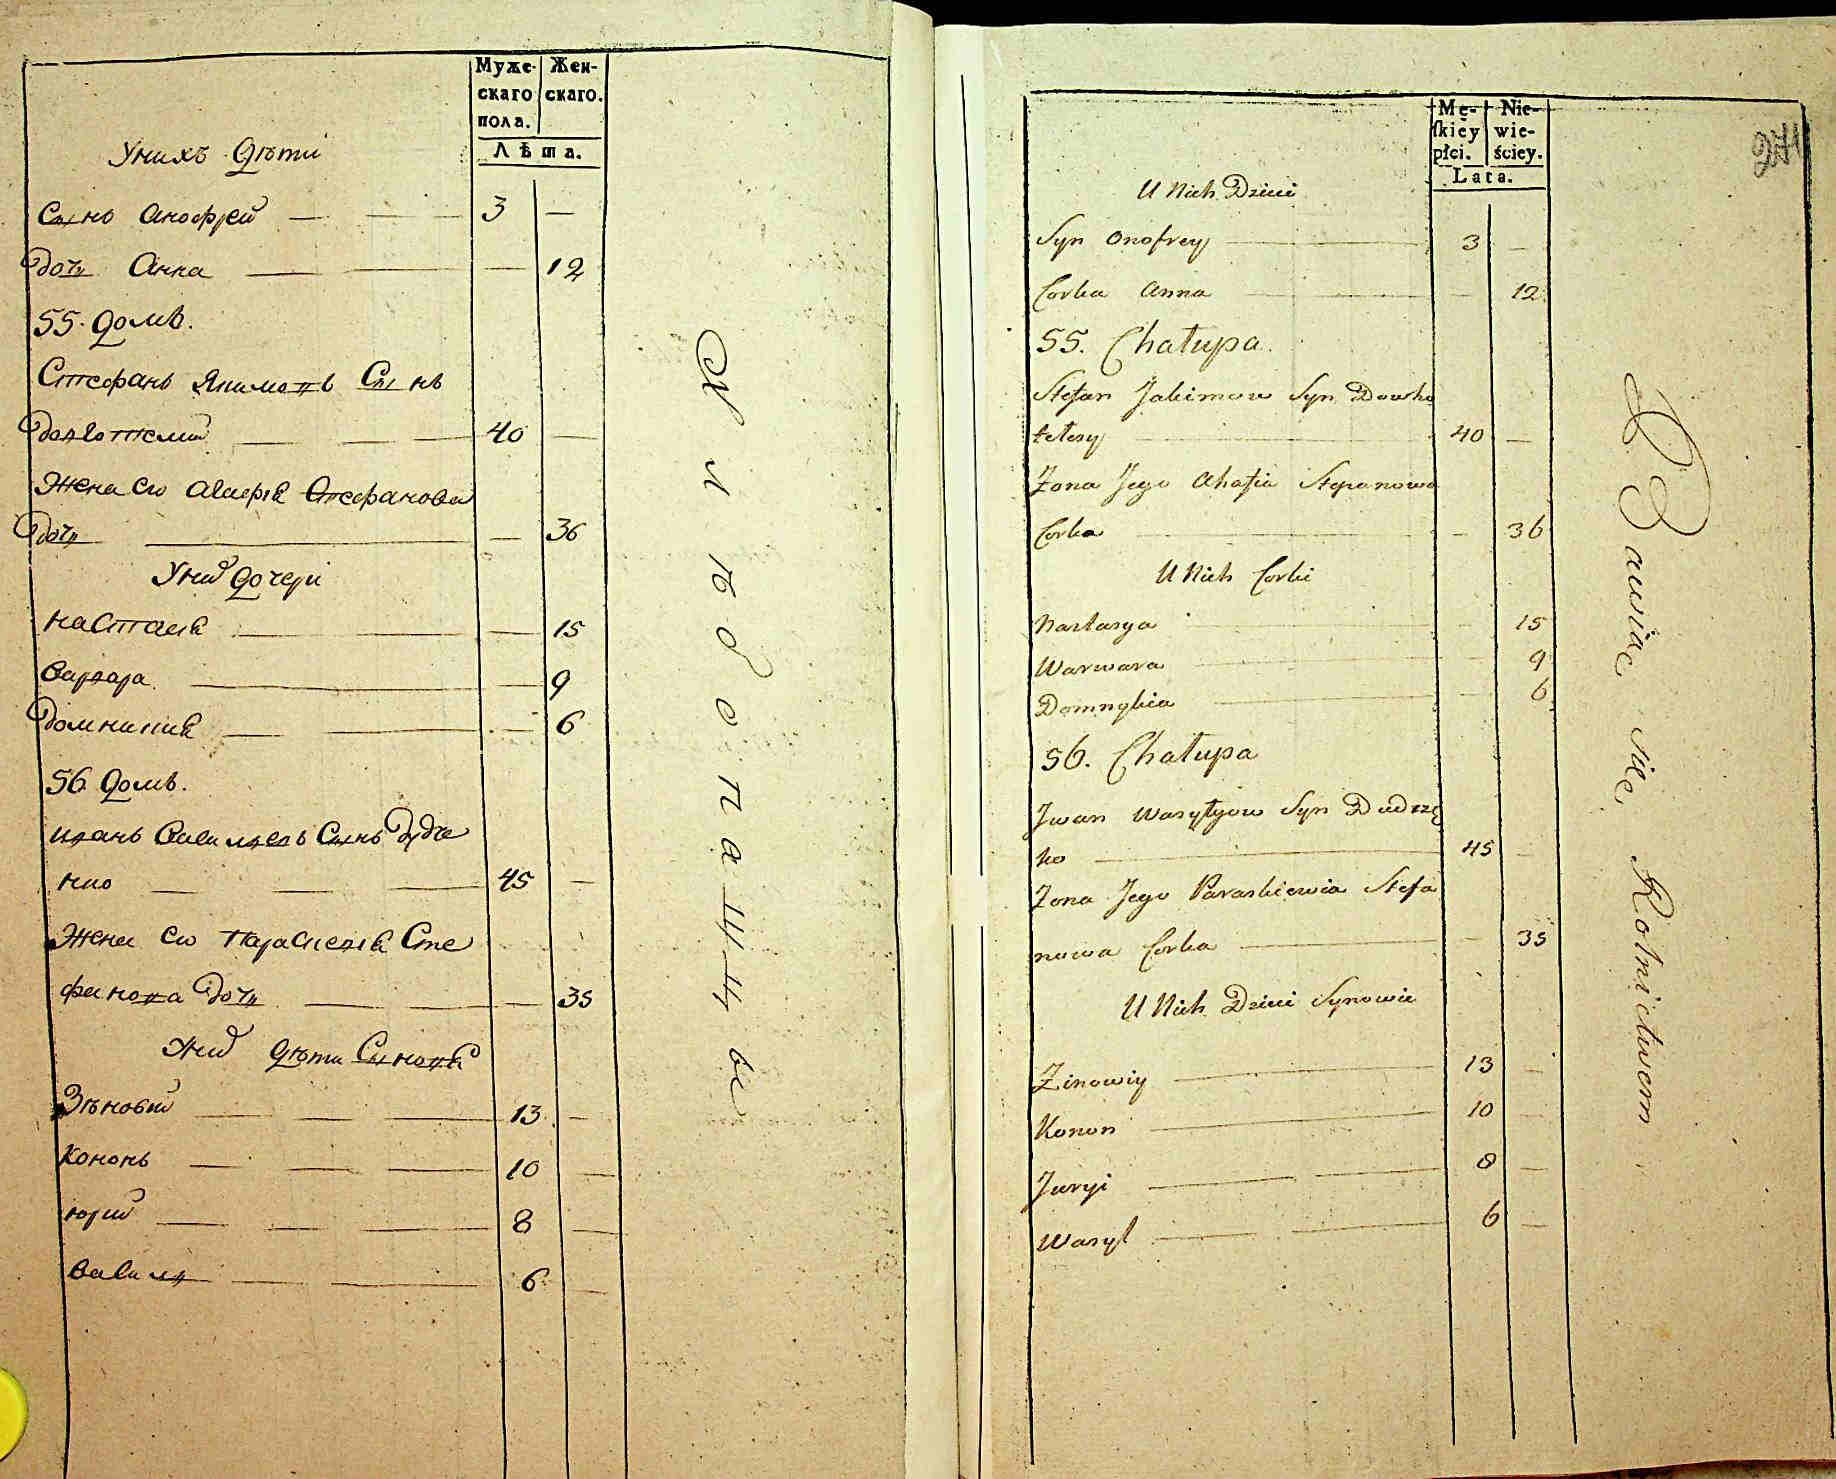 Муже-
скаго
пола.
Жен-
скаго.
Лѣта.
У нихъ дѣти
Сынъ Анофрей — — 3 —
Дочь Анна — — — 12
55. домъ.
Стефанъ Якимовъ Сынъ
Довготелий — — — 40 —
Жена его Агафія Стефанова
Дочь — — 36
У них дочери
Настасія — — 15
Варвара — — 9
Домникия — — — 6
56 домъ.
Иванъ Василіевъ Сынъ Дудче
нко — — — 45 —
Жена его Параскевія Сте
фанова Дочь — — 35
У них дѣти Синовя
Зѣновий — — — 13 —
Кононъ — — — 10 —
Юрий — — — 8 —
Василь — — 6 —
Хлѣбопашцы
Mę-
skiey
płci.
Nie-
wie-
ściey.
Lata.
274
U Nich Dzieci
Syn Onofrey — 3 —
Corka Anna — — 12
55. Chałupa
Stefan Jakimow Syn Dowho
telery — 40 —
Żona Jego Ahafia Stepanowa
Corka — — 36
U Nich Corki
Nastasya — — 15
Warwara — — 9
Domnykia — — 6
56. Chałupa
Jwan Wasylyow Syn Dudcze
ko — 45 —
Żona Jego Paraskiewia Stefa
nowa Corka — — 35
U Nich Dzieci Synowie
Zinowiy — 13 —
Konon — 10 —
Juryi — — 8 —
Wasyl — — 6 —
Bawiąc się Rolnictwem